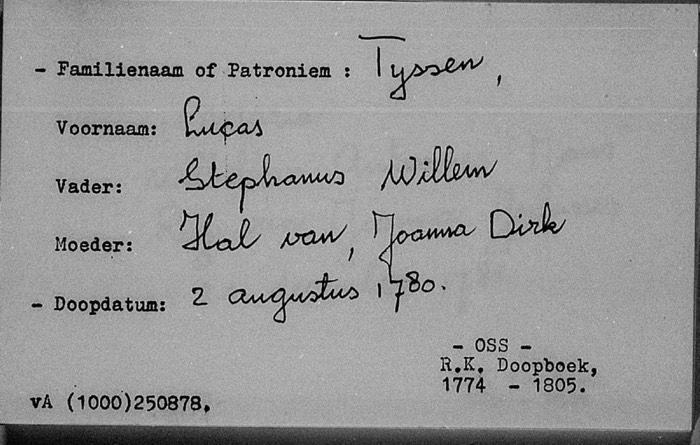 - Familienaam of Patroniem : Tyssen,
Voornaam: Lucas
Vader: Stephanus Willem
Moeder: Hal van, Joanna Dirk
- Doopdatum: 2 augustus 1780.
- OSS -
R.K. Doopboek,
1774 - 1805.
vA (1000)250878.